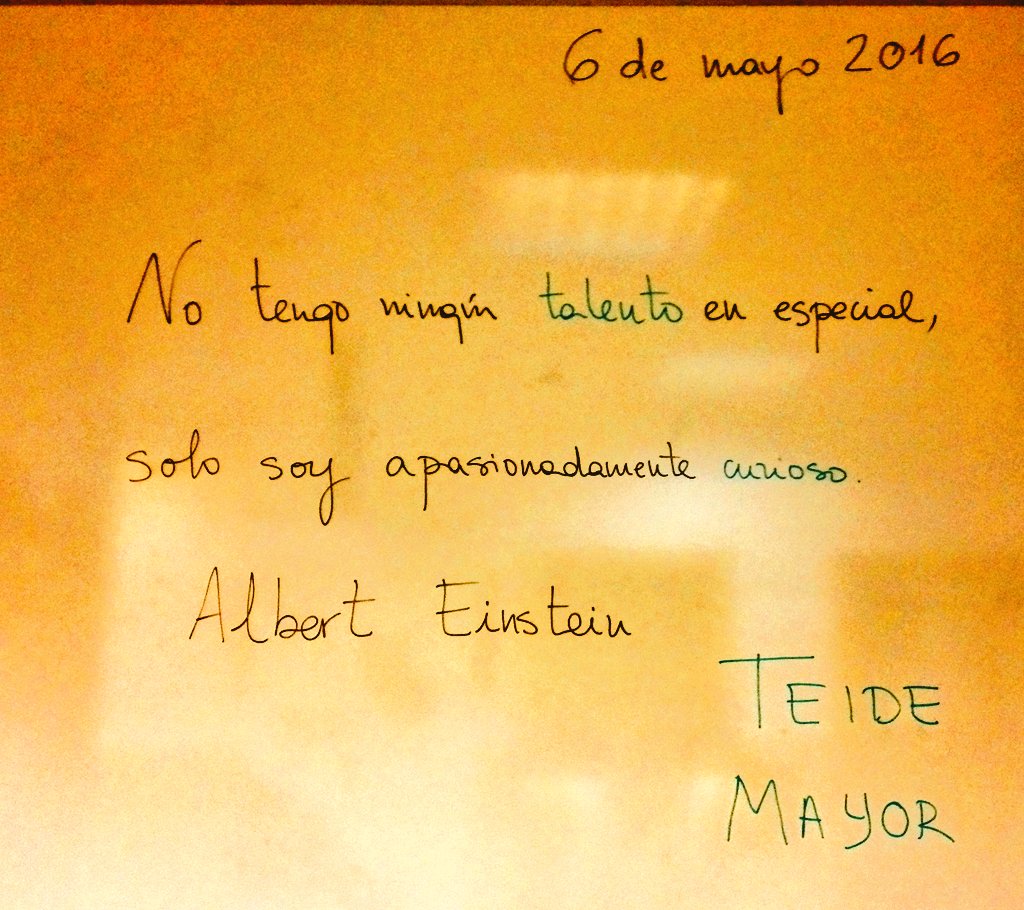 6 de mayo 2016
No tengo ningún talento en especial,
solo soy apasionadamente curioso.
Albert Einstein
TEIDE
MAYOR